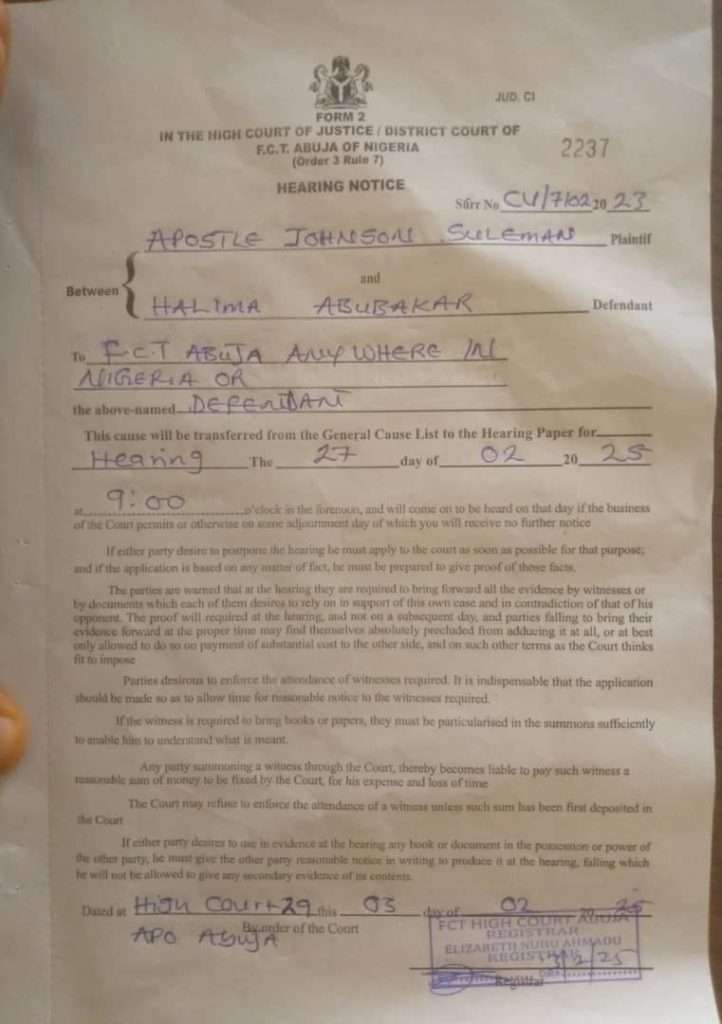 JUD. CI
FORM 2
IN THE HIGH COURT OF JUSTICE / DISTRICT COURT OF
F.C.T. ABUJA OF NIGERIA
(Order 3 Rule 7)
2237
HEARING NOTICE
No CV/7102 20 23
APOSTLE JOHNSON SULEMAN Plaintif
Between
and
HALIMA ABUBAKAR Defendant
To F.C.T ABUJA ANYWHERE IN
NIGERIA OR
the above-named DEFENDANT
This cause will be transferred from the General Cause List to the Hearing Paper for
Hearing The 27 day of 02 20 25
at 9:00 o'clock in the forenoon, and will come on to be heard on that day if the business
of the Court permits or otherwise on some adjournment day of which you will receive no further notice
If either party desire to postpone the hearing he must apply to the court as soon as possible for that purpose;
and if the application is based on any matter of fact, he must be prepared to give proof of those facts.
The parties are warned that at the hearing they are required to bring forward all the evidence by witnesses or
by documents which each of them desires to rely on in support of this own case and in contradiction of that of his
opponent. The proof will required at the hearing, and not on a subsequent day, and parties falling to bring their
evidence forward at the proper time may find themselves absolutely precluded from adducing it at all, or at best
only allowed to do so on payment of substantial cost to the other side, and on such other terms as the Court thinks
fit to impose
Parties desirous to enforce the attendance of witnesses required. It is indispensable that the application
should be made so as to allow time for reasonable notice to the witnesses required.
If the witness is required to bring books or papers, they must be particularised in the summons sufficiently
to anable him to understand what is meant.
Any party summoning a witness through the Court, thereby becomes liable to pay such witness a
reasonable sum of money to be fixed by the Court, for his expense and loss of time
The Court may refuse to enforce the attendance of a witness unless such sum has been first deposited in
the Court
If either party desires to use in evidence at the hearing any book or document in the possession or power of
the other party, he must give the other party reasonable notice in writing to produce it at the hearing, falling which
he will not be allowed to give any secondary evidence of its contents.
Dated at High Court 29 this 03 day of 02 20 25
APO ABUJA By order of the Court
FCT HIGH COURT ABUJA
REGISTRAR
ELIZABETH NUHU AHMADU
REGISTRAR
3/2/25
Registrar